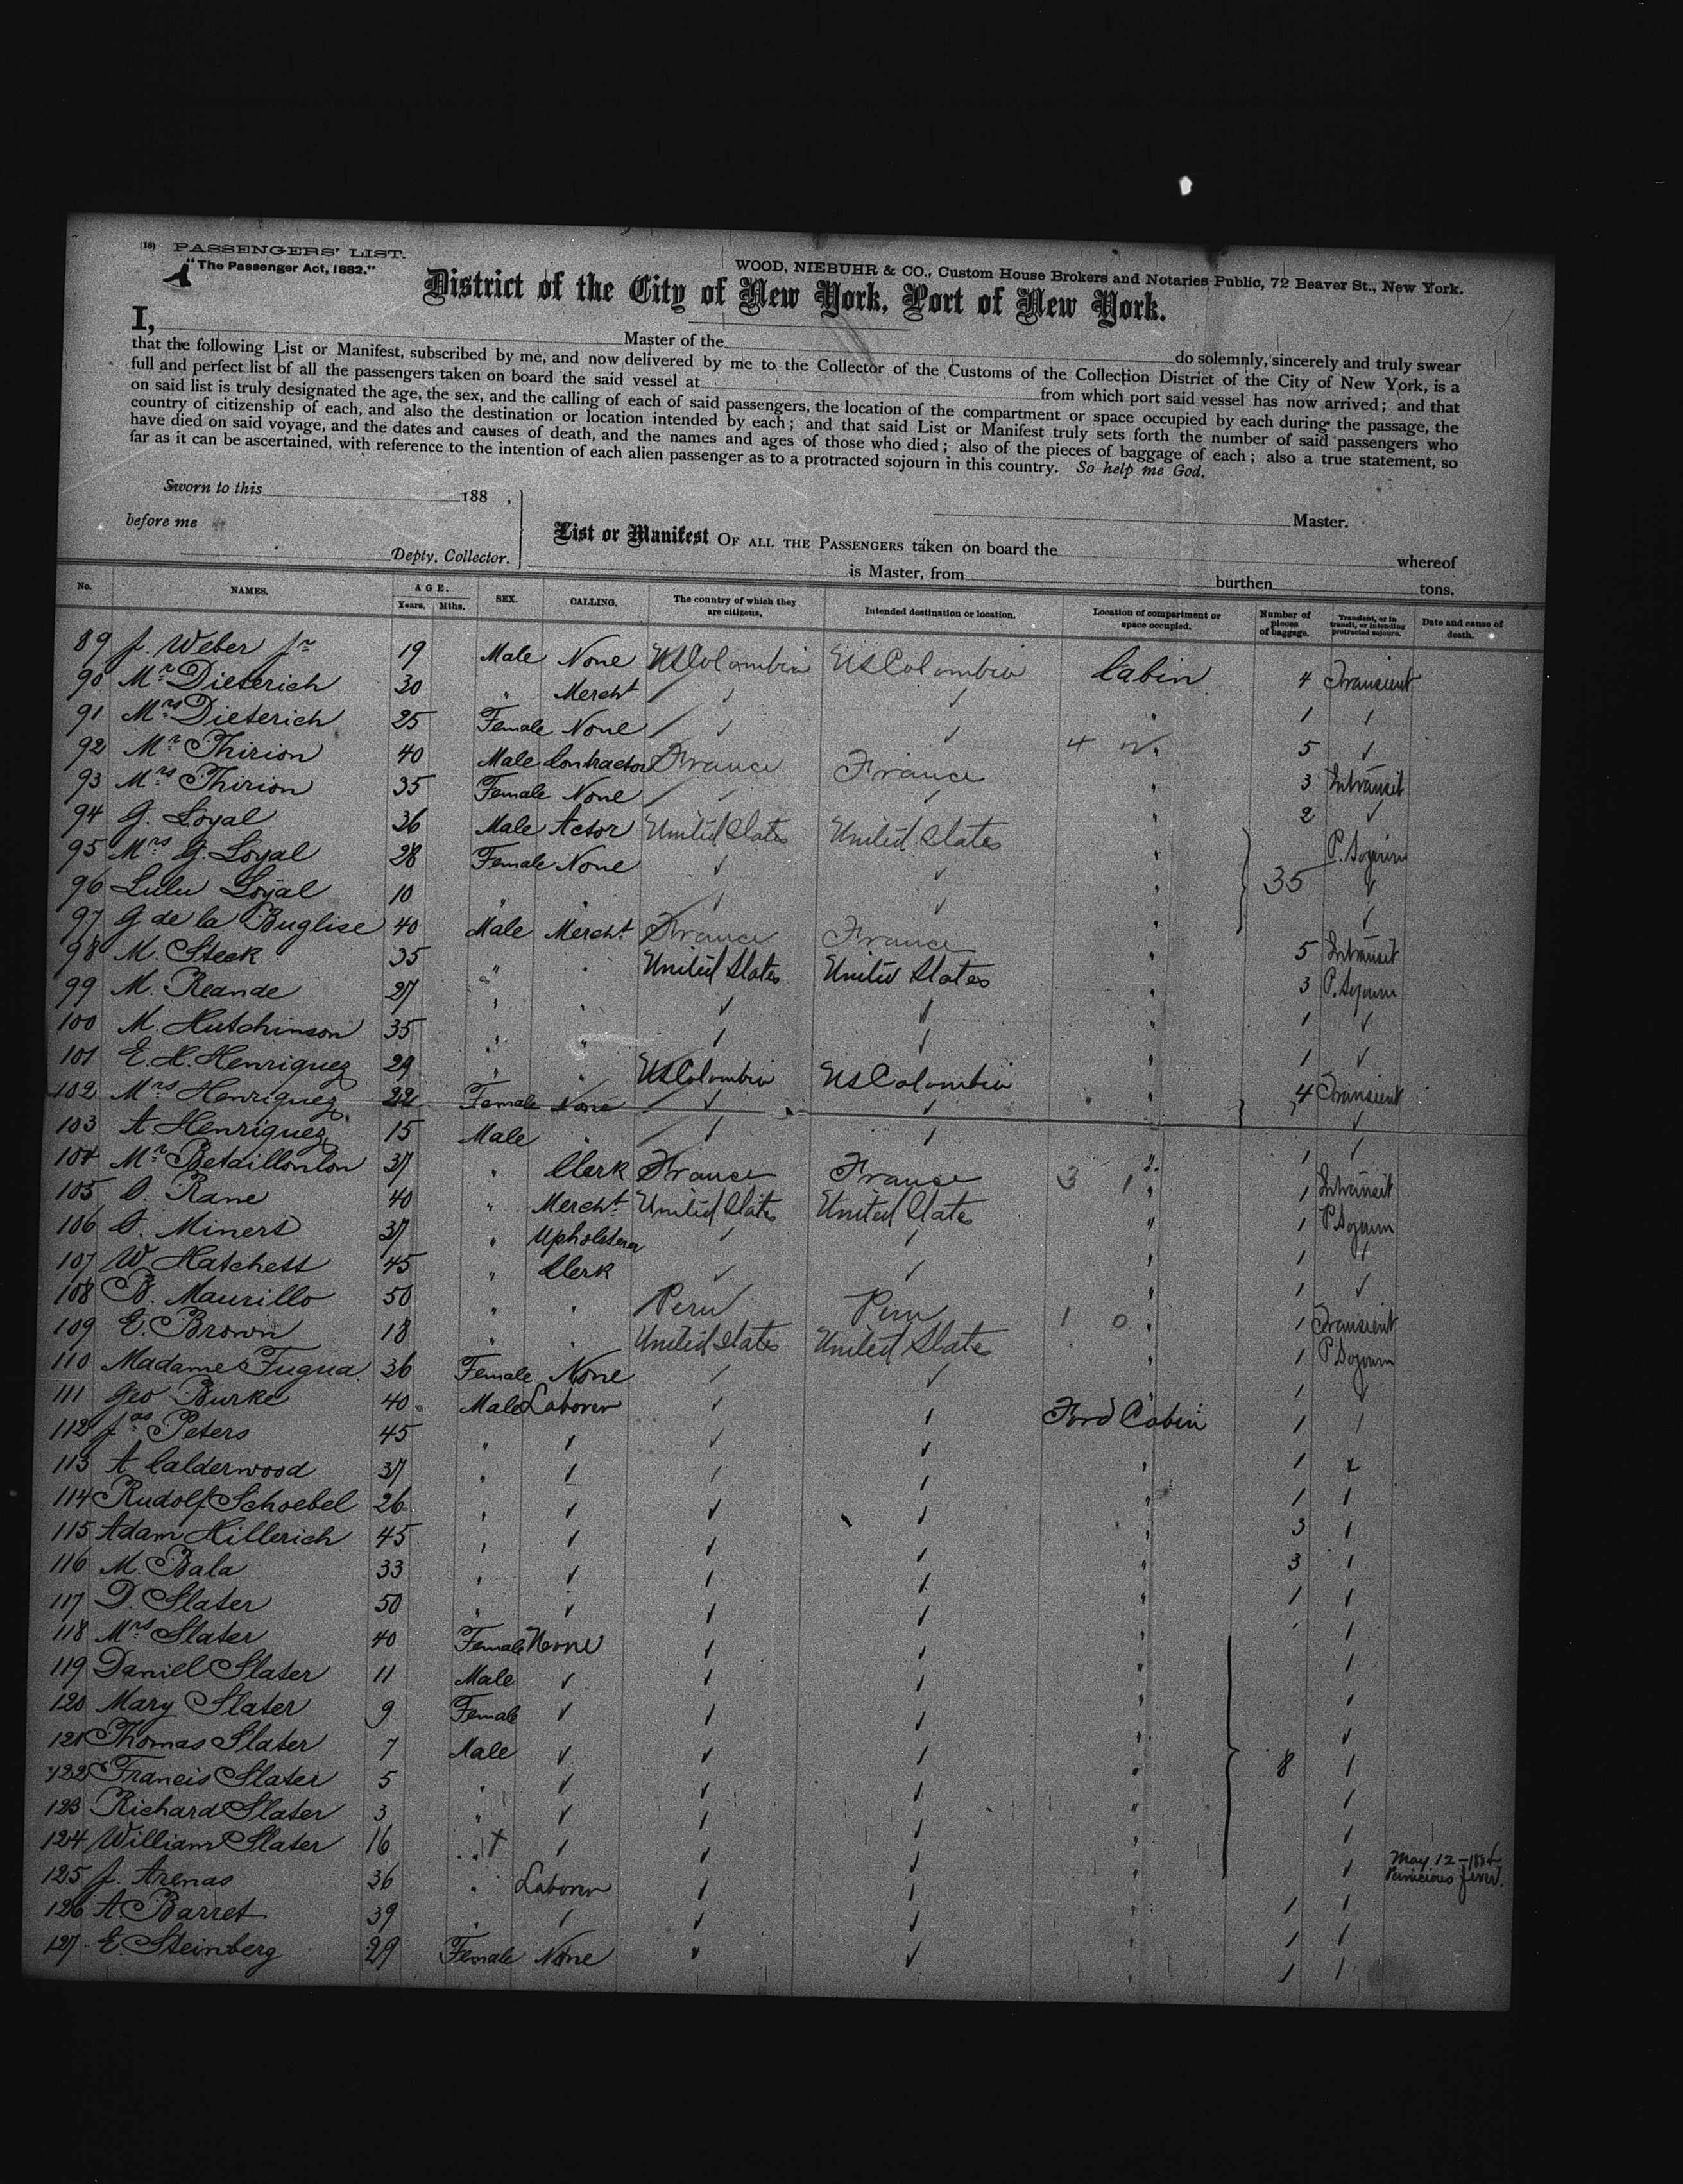 (18) PASSENGERS' LIST.
"The Passenger Act, 1882."
WOOD, NIEBUHR & CO., Custom House Brokers and Notaries Public, 72 Beaver St., New York.
District of the City of New York, Port of New York.
I, Master of the do solemnly, sincerely and truly swear
that the following List or Manifest, subscribed by me, and now delivered by me to the Collector of the Customs of the Collection District of the City of New York, is a
full and perfect list of all the passengers taken on board the said vessel at from which port said vessel has now arrived; and that
on said list is truly designated the age, the sex, and the calling of each of said passengers, the location of the compartment or space occupied by each during the passage, the
country of citizenship of each, and also the destination or location intended by each; and that said List or Manifest truly sets forth the number of said passengers who
have died on said voyage, and the dates and causes of death, and the names and ages of those who died; also of the pieces of baggage of each; also a true statement, so
far as it can be ascertained, with reference to the intention of each alien passenger as to a protracted sojourn in this country. So help me God.
Sworn to this 188 ,
before me Master.
Depty. Collector.
List or Manifest OF ALL THE PASSENGERS taken on board the whereof
is Master, from burthen tons.
No. NAMES. AGE. Years. Mths. SEX. CALLING. The country of which they are citizens. Intended destination or location. Location of compartment or space occupied. Number of pieces of baggage. Transient, or in transit, or intending protracted sojourn. Date and cause of death.
89 J. Weber Jr 19 Male None US Colombia US Colombia Cabin 4 Transient
90 Mr Dieterich 30 " Mercht ✓ ✓ " 1 ✓
91 Mrs Dieterich 25 Female None ✓ ✓ " 5 ✓
92 Mr Thirion 40 Male Contractor France France " 3 Intransit
93 Mrs Thirion 35 Female None ✓ ✓ " 2 ✓
94 G. Loyal 36 Male Actor United States United States " P. Sojourn
95 Mrs G. Loyal 28 Female None ✓ ✓ " 35 ✓
96 Lulu Loyal 10 " " ✓ ✓ " ✓
97 G de la Buglise 40 Male Mercht France France " 5 Intransit
98 M. Steck 35 " " United States United States " 3 P. Sojourn
99 M. Reande 27 " " ✓ ✓ " 1 ✓
100 M. Hutchinson 35 " " ✓ ✓ " 1 ✓
101 E. H. Henriquez 29 " " US Colombia US Colombia " 4 Transient
102 Mrs Henriquez 22 Female None ✓ ✓ " ✓
103 A Henriquez 15 Male " ✓ ✓ " 1 ✓
104 Mr Betaillonlon 37 " Clerk France France " 1 Intransit
105 O. Rane 40 " Mercht United States United States " 1 P. Sojourn
106 O. Miners 37 " Upholsterer ✓ ✓ " 1 ✓
107 W. Hatchett 45 " Clerk ✓ ✓ " 1 ✓
108 B. Maurillo 50 " " Peru Peru " 1 Transient
109 E. Brown 18 " " United States United States " 1 P. Sojourn
110 Madame Fugua 36 Female None ✓ ✓ 1 ✓
111 Geo Burke 40 Male Laborer ✓ ✓ Ford Cabin 1 ✓
112 Jas Peters 45 " ✓ ✓ ✓ " 1 ✓
113 A Calderwood 37 " ✓ ✓ ✓ " 1 ✓
114 Rudolf Schoebel 26 " ✓ ✓ ✓ " 3 ✓
115 Adam Hillerich 45 " ✓ ✓ ✓ " 3 ✓
116 M. Bala 33 " ✓ ✓ ✓ " 1 ✓
117 D. Slater 50 " ✓ ✓ ✓ " ✓
118 Mrs Slater 40 Female None ✓ ✓ " ✓
119 Daniel Slater 11 Male ✓ ✓ ✓ " ✓
120 Mary Slater 9 Female ✓ ✓ ✓ " ✓
121 Thomas Slater 7 Male ✓ ✓ ✓ " 8 ✓
122 Francis Slater 5 " ✓ ✓ ✓ " ✓
123 Richard Slater 3 " ✓ ✓ ✓ " ✓
124 William Slater 16 " ✓ ✓ ✓ " ✓ May 12 – 1884 Pernicious fever.
125 J. Arenas 36 " Laborer ✓ ✓ 1 ✓
126 A. Barret 39 " ✓ ✓ ✓ " 1 ✓
127 E. Steinberg 29 Female None ✓ ✓ " 1 ✓